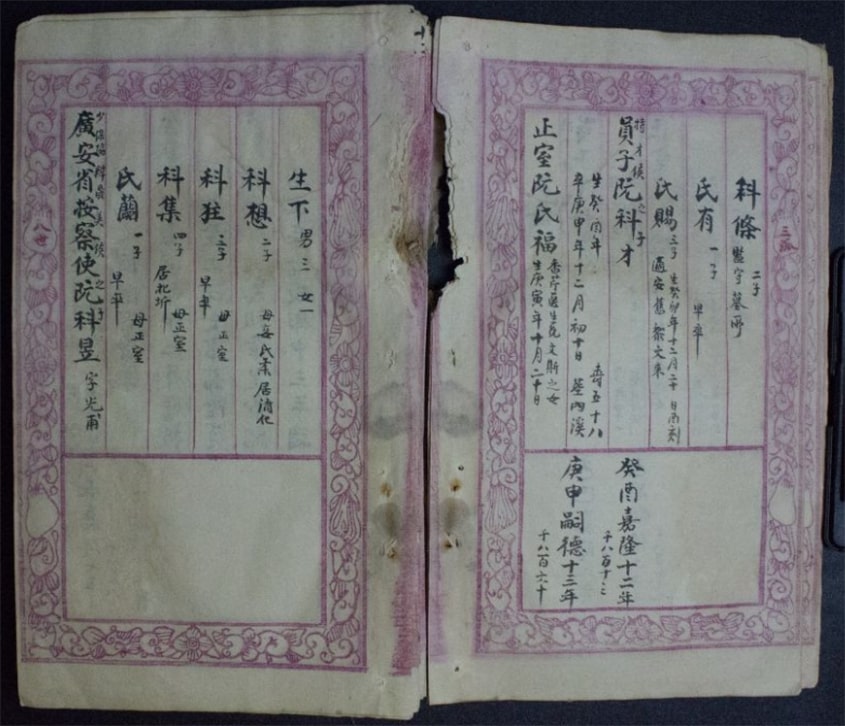 三派
科條 二子 墓所
氏有 一子 早卒
氏賜 三子 生癸卯年十二月二十日
特才侯之子
員子阮科才
生癸酉年 壽五十八
卒庚申年十二月初十日 墓內溪
正室阮氏福 阮文斯之女
生庚寅年十月二十日
癸酉嘉隆十二年
千八百十三
庚申嗣德十三年
千八百六十
生下 男三 女一
科想 二子 母妾氏柔居清化
科狂 三子 早卒 母正室
科集 四子 居 母正室
氏蘭 一子 早卒 母正室
之子
廣安省按察使阮科昱 字光甫
八世